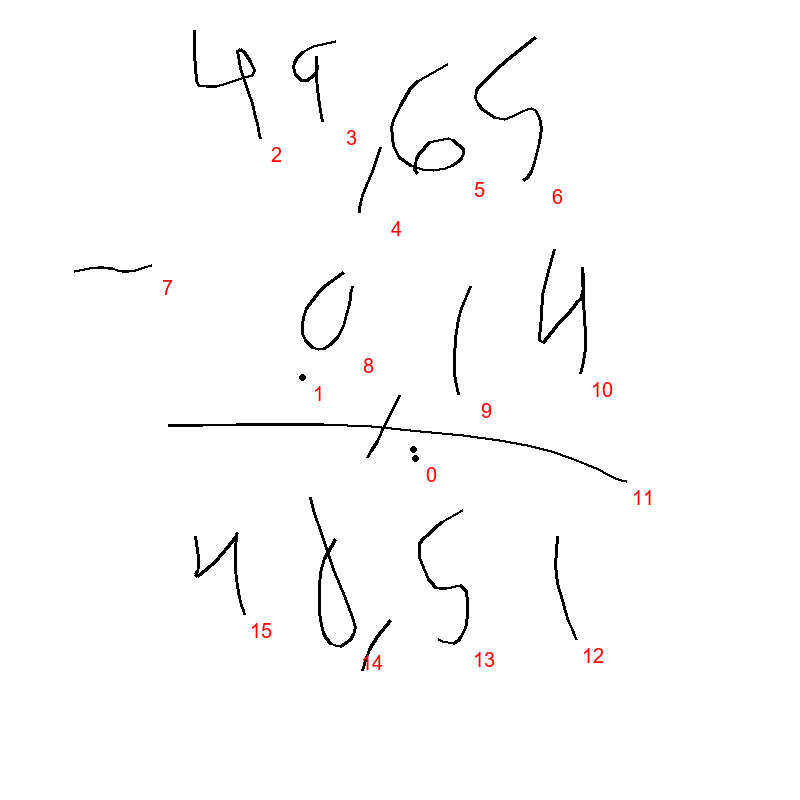 49,65
2 3 4 5 6
- 0,14
7 8 1 9 10
0 11
48,51
15 14 13 12